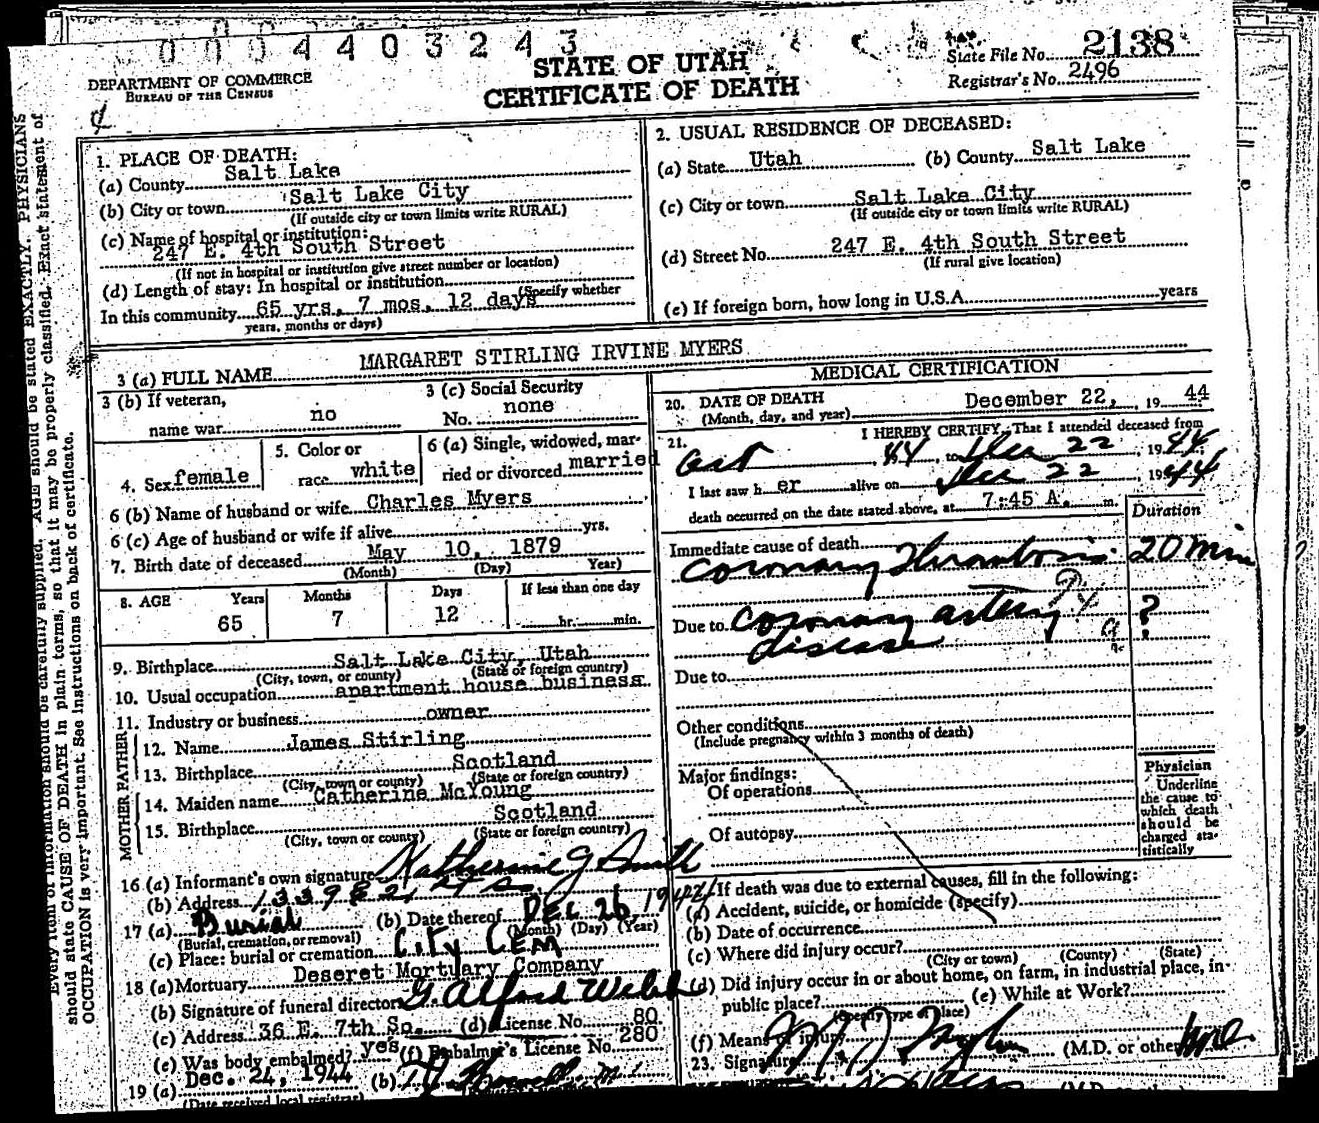 0004403243
STATE OF UTAH
CERTIFICATE OF DEATH
DEPARTMENT OF COMMERCE
BUREAU OF THE CENSUS
State File No. 2138
Registrar's No. 2496
1. PLACE OF DEATH:
(a) County Salt Lake
(b) City or town Salt Lake City
(If outside city or town limits write RURAL)
(c) Name of hospital or institution:
247 E. 4th South Street
(If not in hospital or institution give street number or location)
(d) Length of stay: In hospital or institution
(Specify whether
In this community 65 yrs, 7 mos, 12 days
years, months or days)
2. USUAL RESIDENCE OF DECEASED:
(a) State Utah (b) County Salt Lake
(c) City or town Salt Lake City
(If outside city or town limits write RURAL)
(d) Street No. 247 E. 4th South Street
(If rural give location)
(e) If foreign born, how long in U.S.A. years
3 (a) FULL NAME MARGARET STIRLING IRVINE MYERS
3 (b) If veteran,
name war no
3 (c) Social Security
No. none
4. Sex female
5. Color or
race white
6 (a) Single, widowed, mar-
ried or divorced married
6 (b) Name of husband or wife Charles Myers
6 (c) Age of husband or wife if alive yrs.
7. Birth date of deceased May 10, 1879
(Month) (Day) Year)
8. AGE Years Months Days If less than one day
65 7 12 hr. min.
9. Birthplace Salt Lake City, Utah
(City, town, or county) (State or foreign country)
10. Usual occupation apartment house business
11. Industry or business owner
FATHER
12. Name James Stirling
13. Birthplace Scotland
(City, town or county) (State or foreign country)
MOTHER
14. Maiden name Catherine McYoung
15. Birthplace Scotland
(City, town or county) (State or foreign country)
16 (a) Informant's own signature Katherine G Smith
(b) Address 1339 E 2
17 (a) Burial (b) Date thereof DEC 26, 1944
(Burial, cremation, or removal) (Month) (Day) (Year)
(c) Place: burial or cremation City CEM
18 (a) Mortuary Deseret Mortuary Company
(b) Signature of funeral director G. Alford Welch
(c) Address 36 E. 7th So. (d) License No. 80
(e) Was body embalmed? yes (f) Embalmer's License No. 280
19 (a) Dec. 24, 1944 (b)
(Date received local registrar)
MEDICAL CERTIFICATION
20. DATE OF DEATH
(Month, day, and year) December 22, 19 44
21. I HEREBY CERTIFY, That I attended deceased from
Oct, 44, to Dec 22, 19 44
I last saw h er alive on Dec 22 1944
death occurred on the date stated above, at 7:45 A. m.
Duration
Immediate cause of death
Coronary Thrombosis 20 min
Due to coronary artery ?
disease
Due to
Other conditions
(Include pregnancy within 3 months of death)
Major findings:
Of operations
Of autopsy
Physician
Underline
the cause to
which death
should be
charged sta-
tistically
If death was due to external causes, fill in the following:
(a) Accident, suicide, or homicide (specify)
(b) Date of occurrence
(c) Where did injury occur?
(City or town) (County) (State)
(d) Did injury occur in or about home, on farm, in industrial place, in
public place? (e) While at Work?
(Specify type of place)
(f) Means of injury
23. Signature (M.D. or other
Every item of information should be carefully supplied. AGE should be stated EXACTLY. PHYSICIANS
should state CAUSE OF DEATH in plain terms, so that it may be properly classified. Exact statement of
OCCUPATION is very important. See instructions on back of certificate.